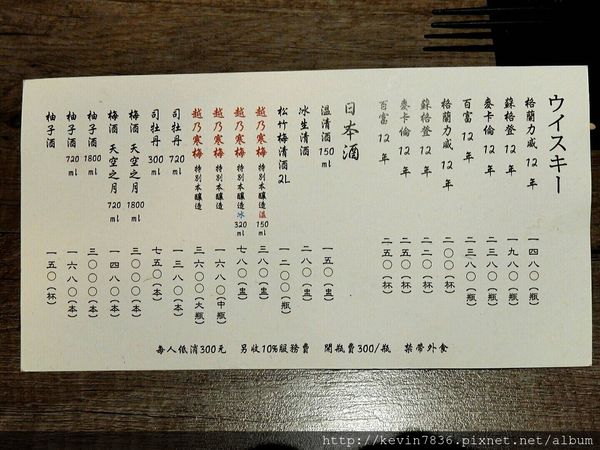 ウイスキー
格蘭力威 12 年 一四八〇(瓶)
蘇格登 12 年 一九八〇(瓶)
麥卡倫 12 年 二三八〇(瓶)
百富 12 年 二三八〇(瓶)
格蘭力威 12 年 二〇〇(杯)
蘇格登 12 年 二二〇(杯)
麥卡倫 12 年 二五〇(杯)
百富 12 年 二五〇(杯)
日本酒
溫清酒 150 ml 一五〇(盅)
冰生清酒 二八〇(盅)
松竹梅清酒 2L 一二〇〇(瓶)
越乃寒梅 特別本釀造 溫 150 ml 三八〇(盅)
越乃寒梅 特別本釀造 冰 320 ml 七八〇(盅)
越乃寒梅 特別本釀造 一六八〇(中瓶)
越乃寒梅 特別本釀造 三六〇〇(大瓶)
司牡丹 720 ml 一三八〇(本)
司牡丹 300 ml 七五〇(本)
梅酒 天空之月 1800 ml 三〇〇〇(本)
梅酒 天空之月 720 ml 一四八〇(本)
柚子酒 1800 ml 三〇〇〇(本)
柚子酒 720 ml 一六八〇(本)
柚子酒 一五〇(杯)
每人低消300元 另收10%服務費 開瓶費300/瓶 禁帶外食
http://kevin7836.pixnet.net/album